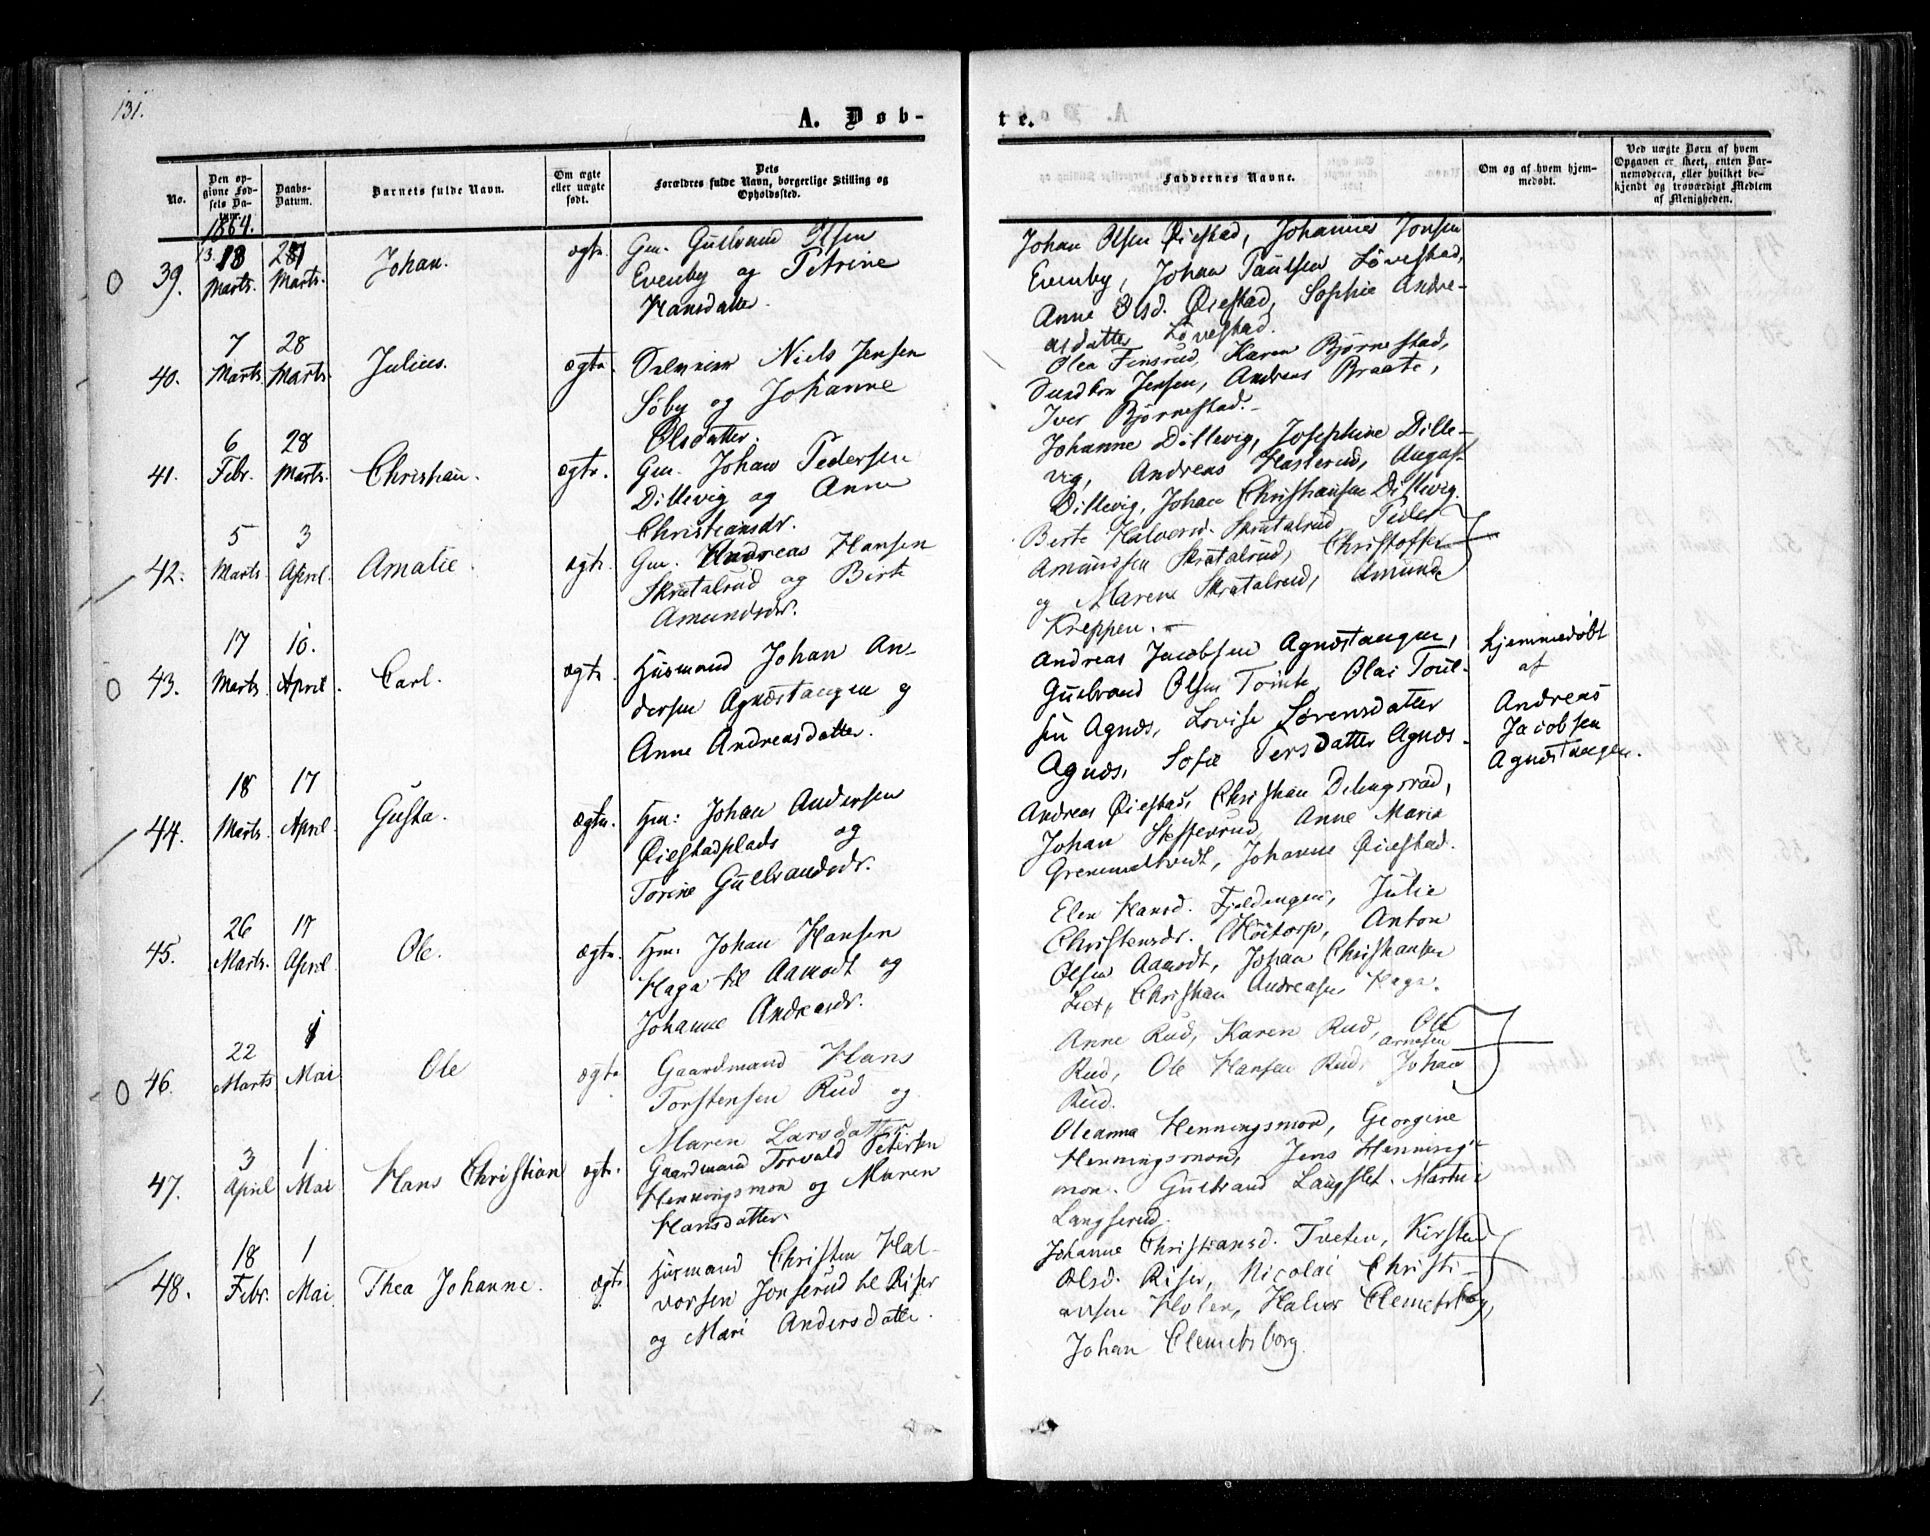 131.
A. Døb-
te.
No.
Den op-
givne Fød-
sels Da-
tum.
Daabs-
Datum.
Barnets fulde Navn.
Om ægte
eller uægte
født.
Dets
Forældres fulde Navn, borgerlige Stilling og
Opholdssted.
Faddernes Navne.
Om og af hvem hjem-
medøbt.
Ved uægte Børn af hvem
Opgaven er skeet, enten Bar-
nemoderen, eller hvilket be-
kjendt og troværdigt Medlem
af Menigheden.
1864.
39. 13 Marts. Marts. Johan. ægte
Gm. Gulbrand Olsen
Evenby og Petrine
Hansdatter.
Johan Olsen Øiestad, Johannes Jonsen
Evenby, Johan Paulsen Løvestad,
Anne Olsd. Øiestad, Sophie Andre-
asdatter Løvestad.
40. 7 Marts 28 Marts. Julius. ægte
Niels Jensen
Søby og Johanne
Olsdatter.
Olea Finsrud, Karen Bjørnestad,
Jensen, Andreas Braate,
Iver Bjørnestad.
41. 6 Febr. 28 Marts. Christian. ægte.
Gm. Johan Pedersen
Dillevig og Anne
Christiansdr.
Johanne Dillevig, Josephine Dille-
vig, Andreas Haslerud, August
Dillevig, Johan Christiansen Dillevig.
42. 5 Marts 3 April. Amalie. ægte
Gm. Andreas Hansen
Skratalrud og Birte
Amundsdr.
Berte Halvorsd. Skratalrud, Peder
Amundsen Skratalrud, Christoffer
og Maren Skratalrud, Amund
Kreppen.
43. 17 Marts. 10. April. Carl. ægte
Husmand Johan An-
dersen Agnæstangen og
Anne Andreasdatter.
Andreas Jacobsen Agnæstangen,
Gulbrand Olsen Tomte, Olai Poul-
sen Agnæs, Lovise Sørensdatter
Agnæs, Sofie Persdatter Agnæs.
Hjemmedøbt
af
Andreas
Jacobsen
Agnæstangen.
44. 18 Marts. 17 April. Gusta. ægte.
Hm: Johan Andersen
Øiestadplads og
Torine Gulbrandsdr.
Andreas Øiestad, Christian
Johan Steffensrud, Anne Maria
Johanne Øiestad.
45. 26 Marts. 17 April. Ole. ægte.
Hm. Johan Hansen
Haga til Aamodt og
Johanne Andreasdr.
Elen Hansd. Fjeldengen, Julie
Christensdr. Anton
Olsen Aamodt, Johan Christiansen
Christian Andreasen Haga.
46. 22 Marts 1 Mai Ole ægte
Gaardmand Hans
Torstensen Rud og
Maren Larsdatter
Anne Rud, Karen Rud, Ole
Arnesen
Rud, Ole Hansen Rud, Johan
Rud.
47. 3 April 1 Mai Hans Christian ægte.
Gaardmand Torvald Petersen
Henningsmon og Maren
Hansdatter.
Oleanna Henningsmon, Georgine
Henningsmon, Jens Hennings-
mon. Gulbrand Langslet.
Langserud.
48. 18 Febr. 1 Mai Thea Johanne. ægte
Husmand Christen Hal-
vorsen Jonserud til Riser
og Mari Andersdatter.
Johanne Christiansd. Tveten, Kirsten
Olsd. Riser, Nicolai Christi-
ansen Holen, Halvor Clemetsborg,
Johan Clemetsborg.